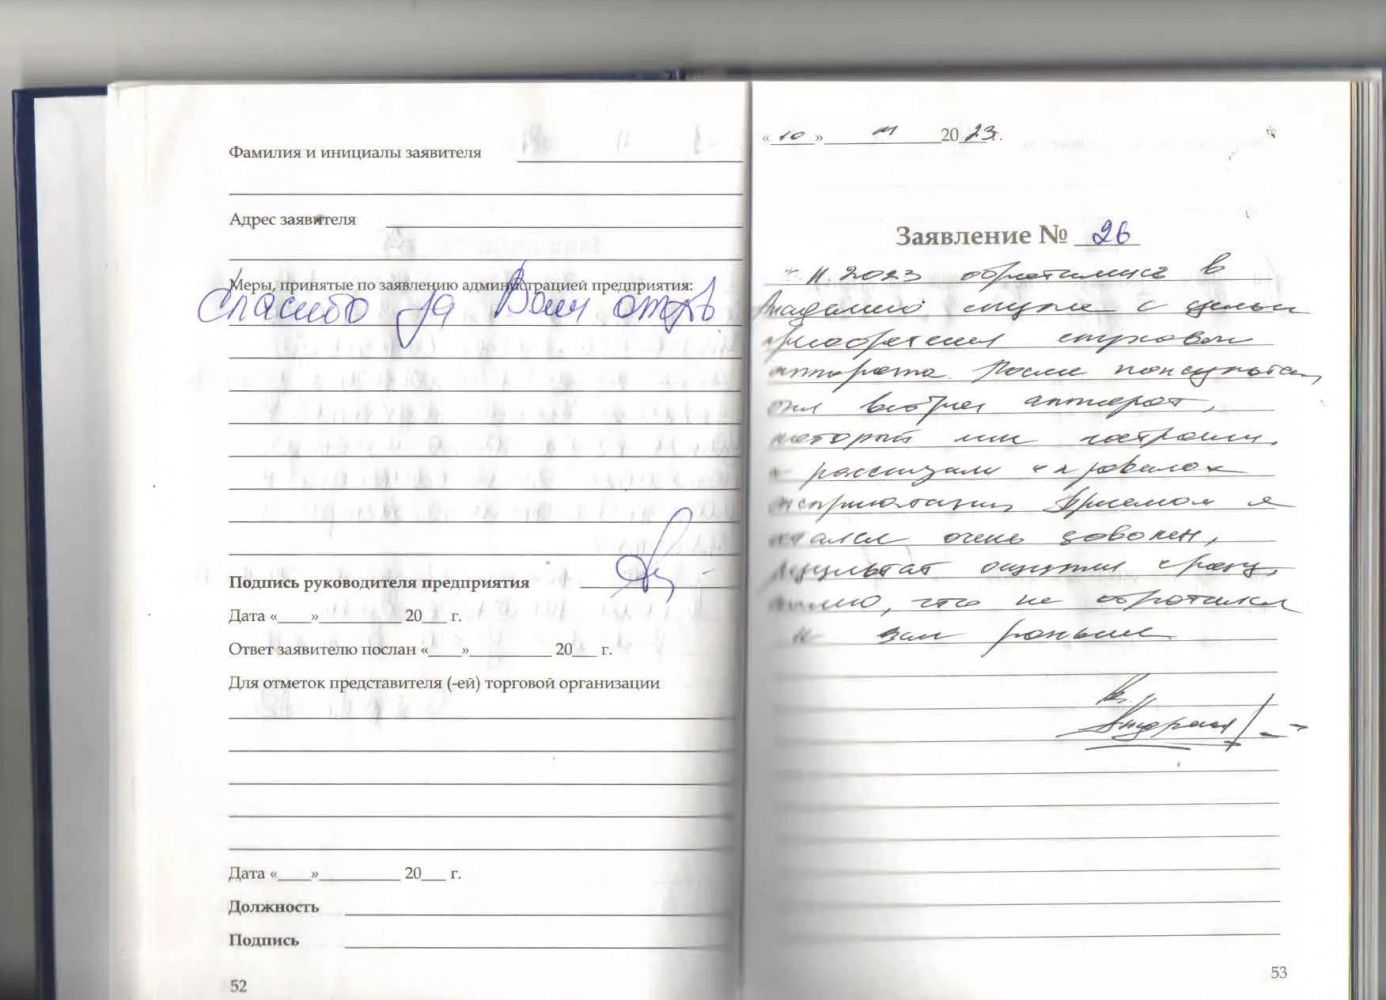 Фамилия и инициалы заявителя
Адрес заявителя
Меры, принятые по заявлению администрацией предприятия:
Спасибо за Ваш отзыв
Подпись руководителя предприятия
Дата «____»__________ 20___ г.
Ответ заявителю послан «____»__________ 20___ г.
Для отметок представителя (-ей) торговой организации
Дата «____»__________ 20___ г.
Должность
Подпись
52
«10» 11 2023г.
Заявление № 26
11.2023 обратились в
Академию слуха с целью
приобретения слухового
аппарата. После консультации
был выбран аппарат,
который мне настроили.
рассказали о правилах
эксплуатации. Приемом я
остался очень доволен,
результат ощутил сразу,
жалко, что не обратился
к вам раньше
53